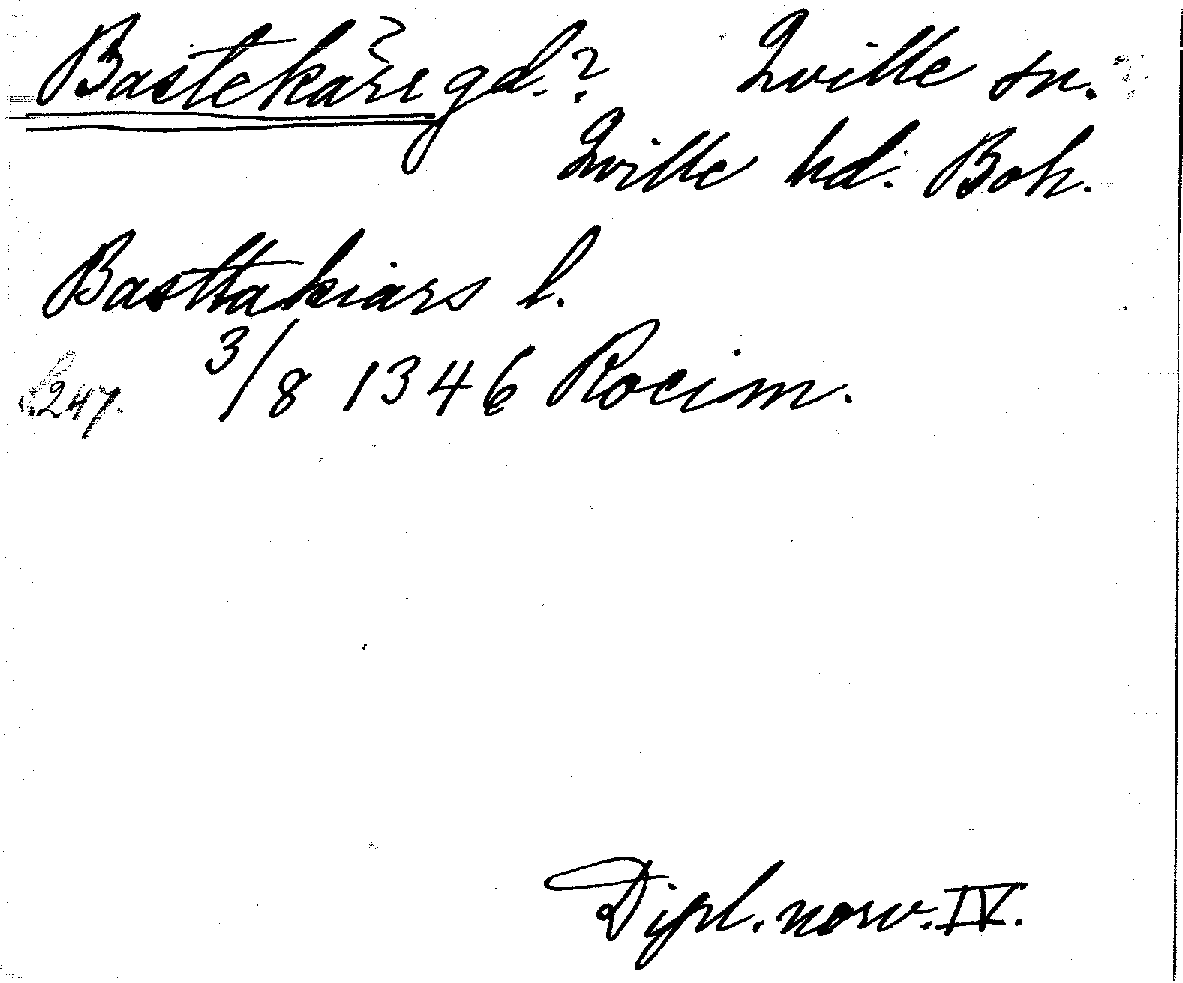 Bastekärr gd.? Qville sn.?
Qville hd. Boh.
Basttakiars l.
s. 247. 3/8 1346 Rocim.
Dipl. norv. IV.